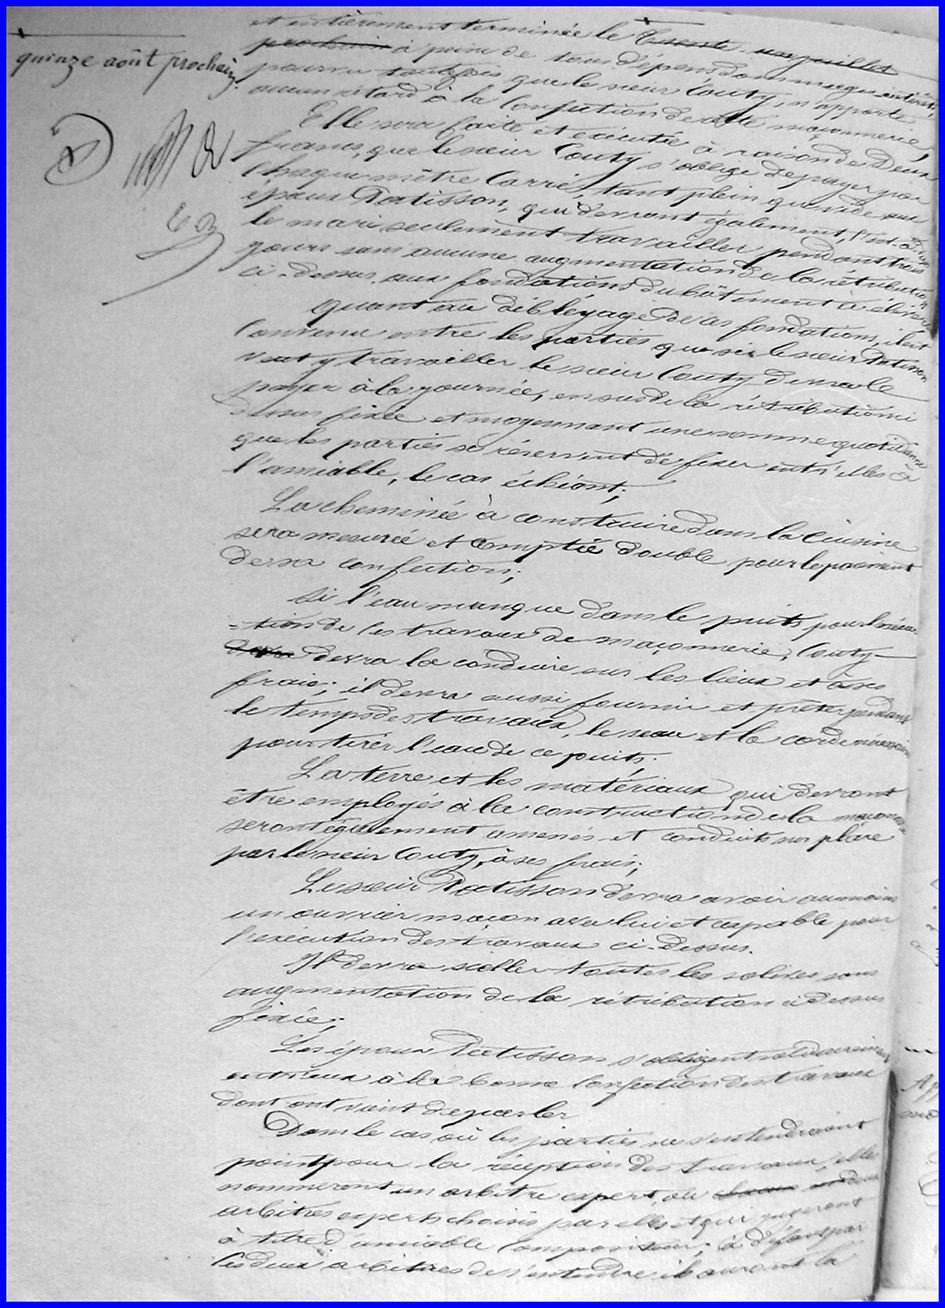 quinze août prochain
et entièrement terminée le trente un juillet
prochain à peine de tous dépens dommages intérêts,
pourvu toutefois que le sieur Couty, n'apporte
aucun retard à la confection de cette maçonnerie,
Elle sera faite et exécutée à raison de Deux
francs, que le sieur Couty s'oblige de payer par
Chaque mètre Carré, tant plein que vide aux
époux Patisson, qui devront également, c'est à dire
le mari seulement travailler pendant trois
jours sans aucune augmentation de la rétribution
ci-dessus, aux fondations du bâtiment à élever
Quant au débléyage de ces fondations, il est
Convenu entre les parties que si le sieur Patisson
veut y travailler le sieur Couty devra le
payer à la journée, en sus de la rétribution ci
dessus fixée et moyennant une somme quotidienne
que les parties se réservent de fixer entr'elles à
l'amiable, le cas échéant;
La cheminée à construire dans la Cuisine
sera mesurée et Comptée double pour le paiement
de sa confection;
Si l'eau manque dans le puits pour l'exécu-
-tion de ces travaux de maçonnerie, Couty
devra la conduire sur les lieux et à ses
frais; il devra aussi fournir et prêter pendant
le temps des travaux, le seau et la corde nécessaires
pour tirer l'eau de ce puits.
La terre et les matériaux qui devront
être employés à la construction de la maçonnerie
seront également amenés et conduits sur place
par le sieur Couty, à ses frais;
Le sieur Patisson devra avoir au moins
un ouvrier maçon avec lui et capable pour
l'exécution des travaux ci-dessus.
Il devra sceller toutes les solives sans
augmentation de la rétribution ci dessus
fixée;
Les époux Patisson s'obligent solidairement
entr'eux à la bonne Confection des travaux
dont ont vient de parler
Dans le cas où les parties ne s'entendraient
point pour la réception des travaux, elles
nommeront un arbitre expert ou deux
arbitres experts choisis par elles et qui jugeront
à titre d'amiable Compositeur; à défaut par
les deux arbitres de s'entendre ils auront la